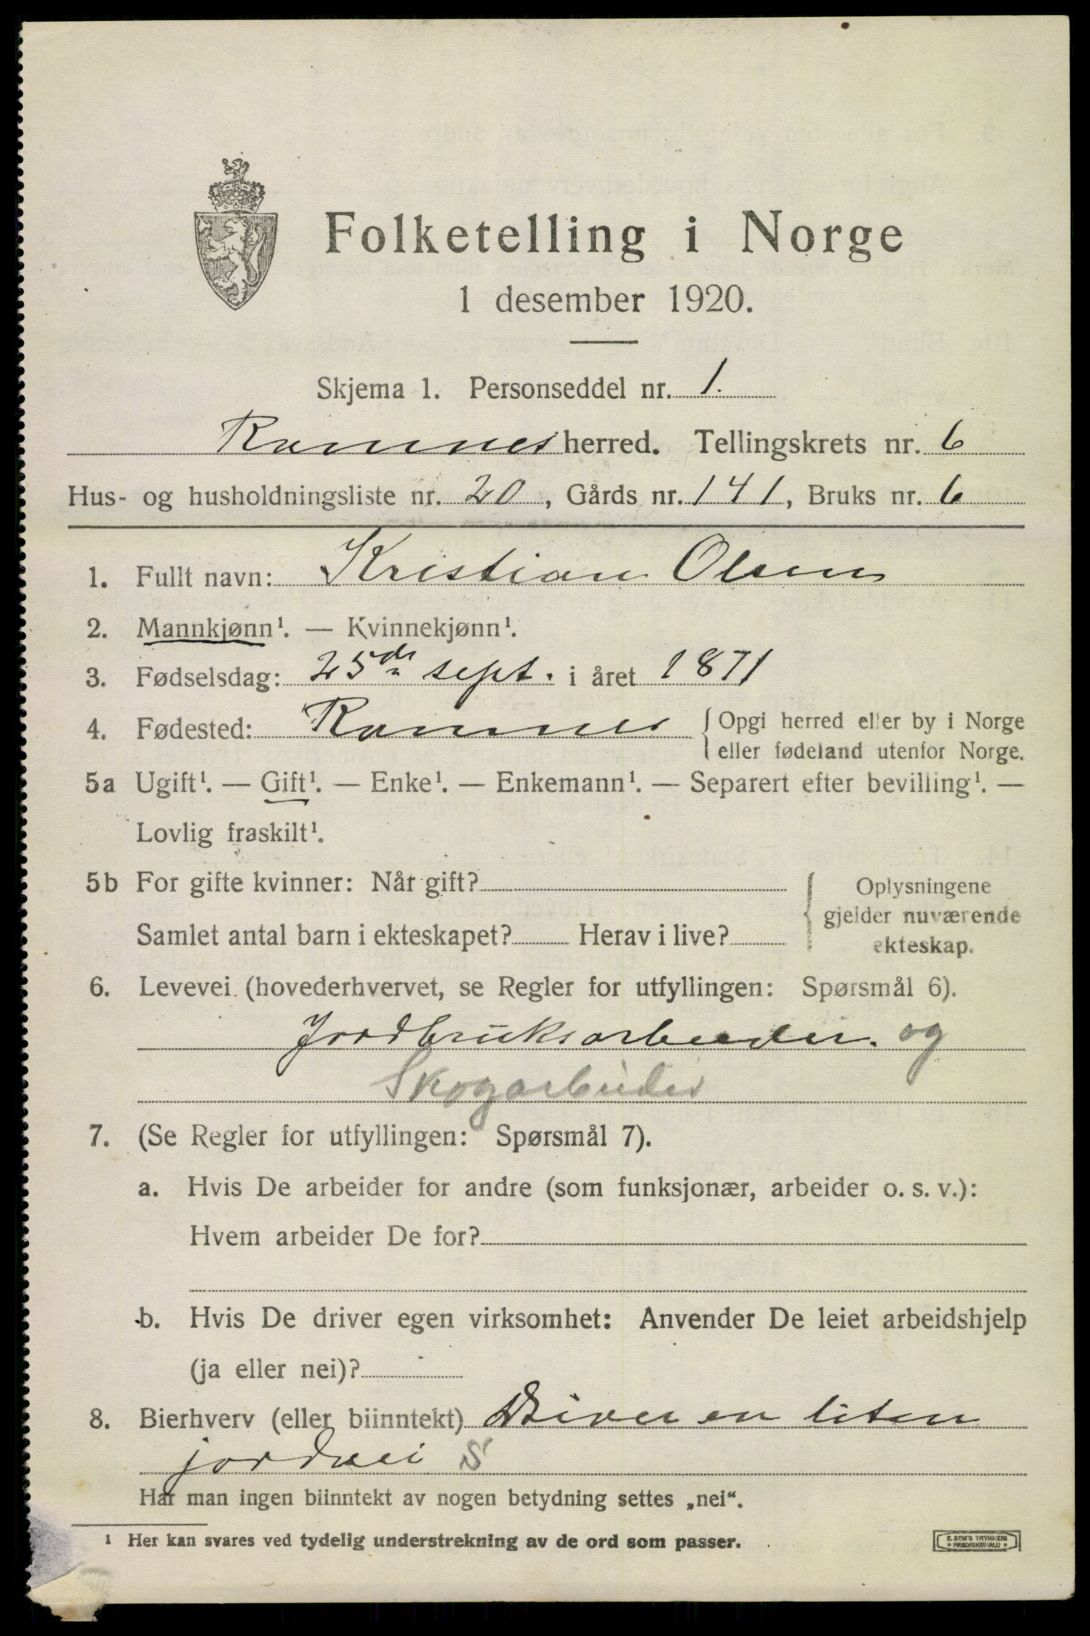 Folketelling i Norge
1 desember 1920.
Skjema 1. Personseddel nr. 1.
Ramnes herred. Tellingskrets nr. 6
Hus- og husholdningsliste nr. 20, Gårds nr. 141, Bruks nr. 6
1. Fullt navn: Kristian Olsen
2. Mannkjønn¹. — Kvinnekjønn¹.
3. Fødselsdag: 25de sept. i året 1871
4. Fødested: Ramnes {Opgi herred eller by i Norge
eller fødeland utenfor Norge.
5a Ugift¹. — Gift¹. — Enke¹. — Enkemann¹. — Separert efter bevilling¹. —
Lovlig fraskilt¹.
5b For gifte kvinner: Når gift?
Samlet antal barn i ekteskapet? Herav i live?
{Oplysningene
gjelder nuværende
ekteskap.
6. Levevei (hovederhvervet, se Regler for utfyllingen: Spørsmål 6).
Jordbruksarbeider. og
Skogarbeider
7. (Se Regler for utfyllingen: Spørsmål 7).
a. Hvis De arbeider for andre (som funksjonær, arbeider o. s. v.):
Hvem arbeider De for?
b. Hvis De driver egen virksomhet: Anvender De leiet arbeidshjelp
(ja eller nei)?
8. Bierhverv (eller biinntekt) Driver en liten
jordvei S
Har man ingen biinntekt av nogen betydning settes „nei“.
¹ Her kan svares ved tydelig understrekning av de ord som passer.
E. SEM'S TRYKKERI
FREDRIKSHALD